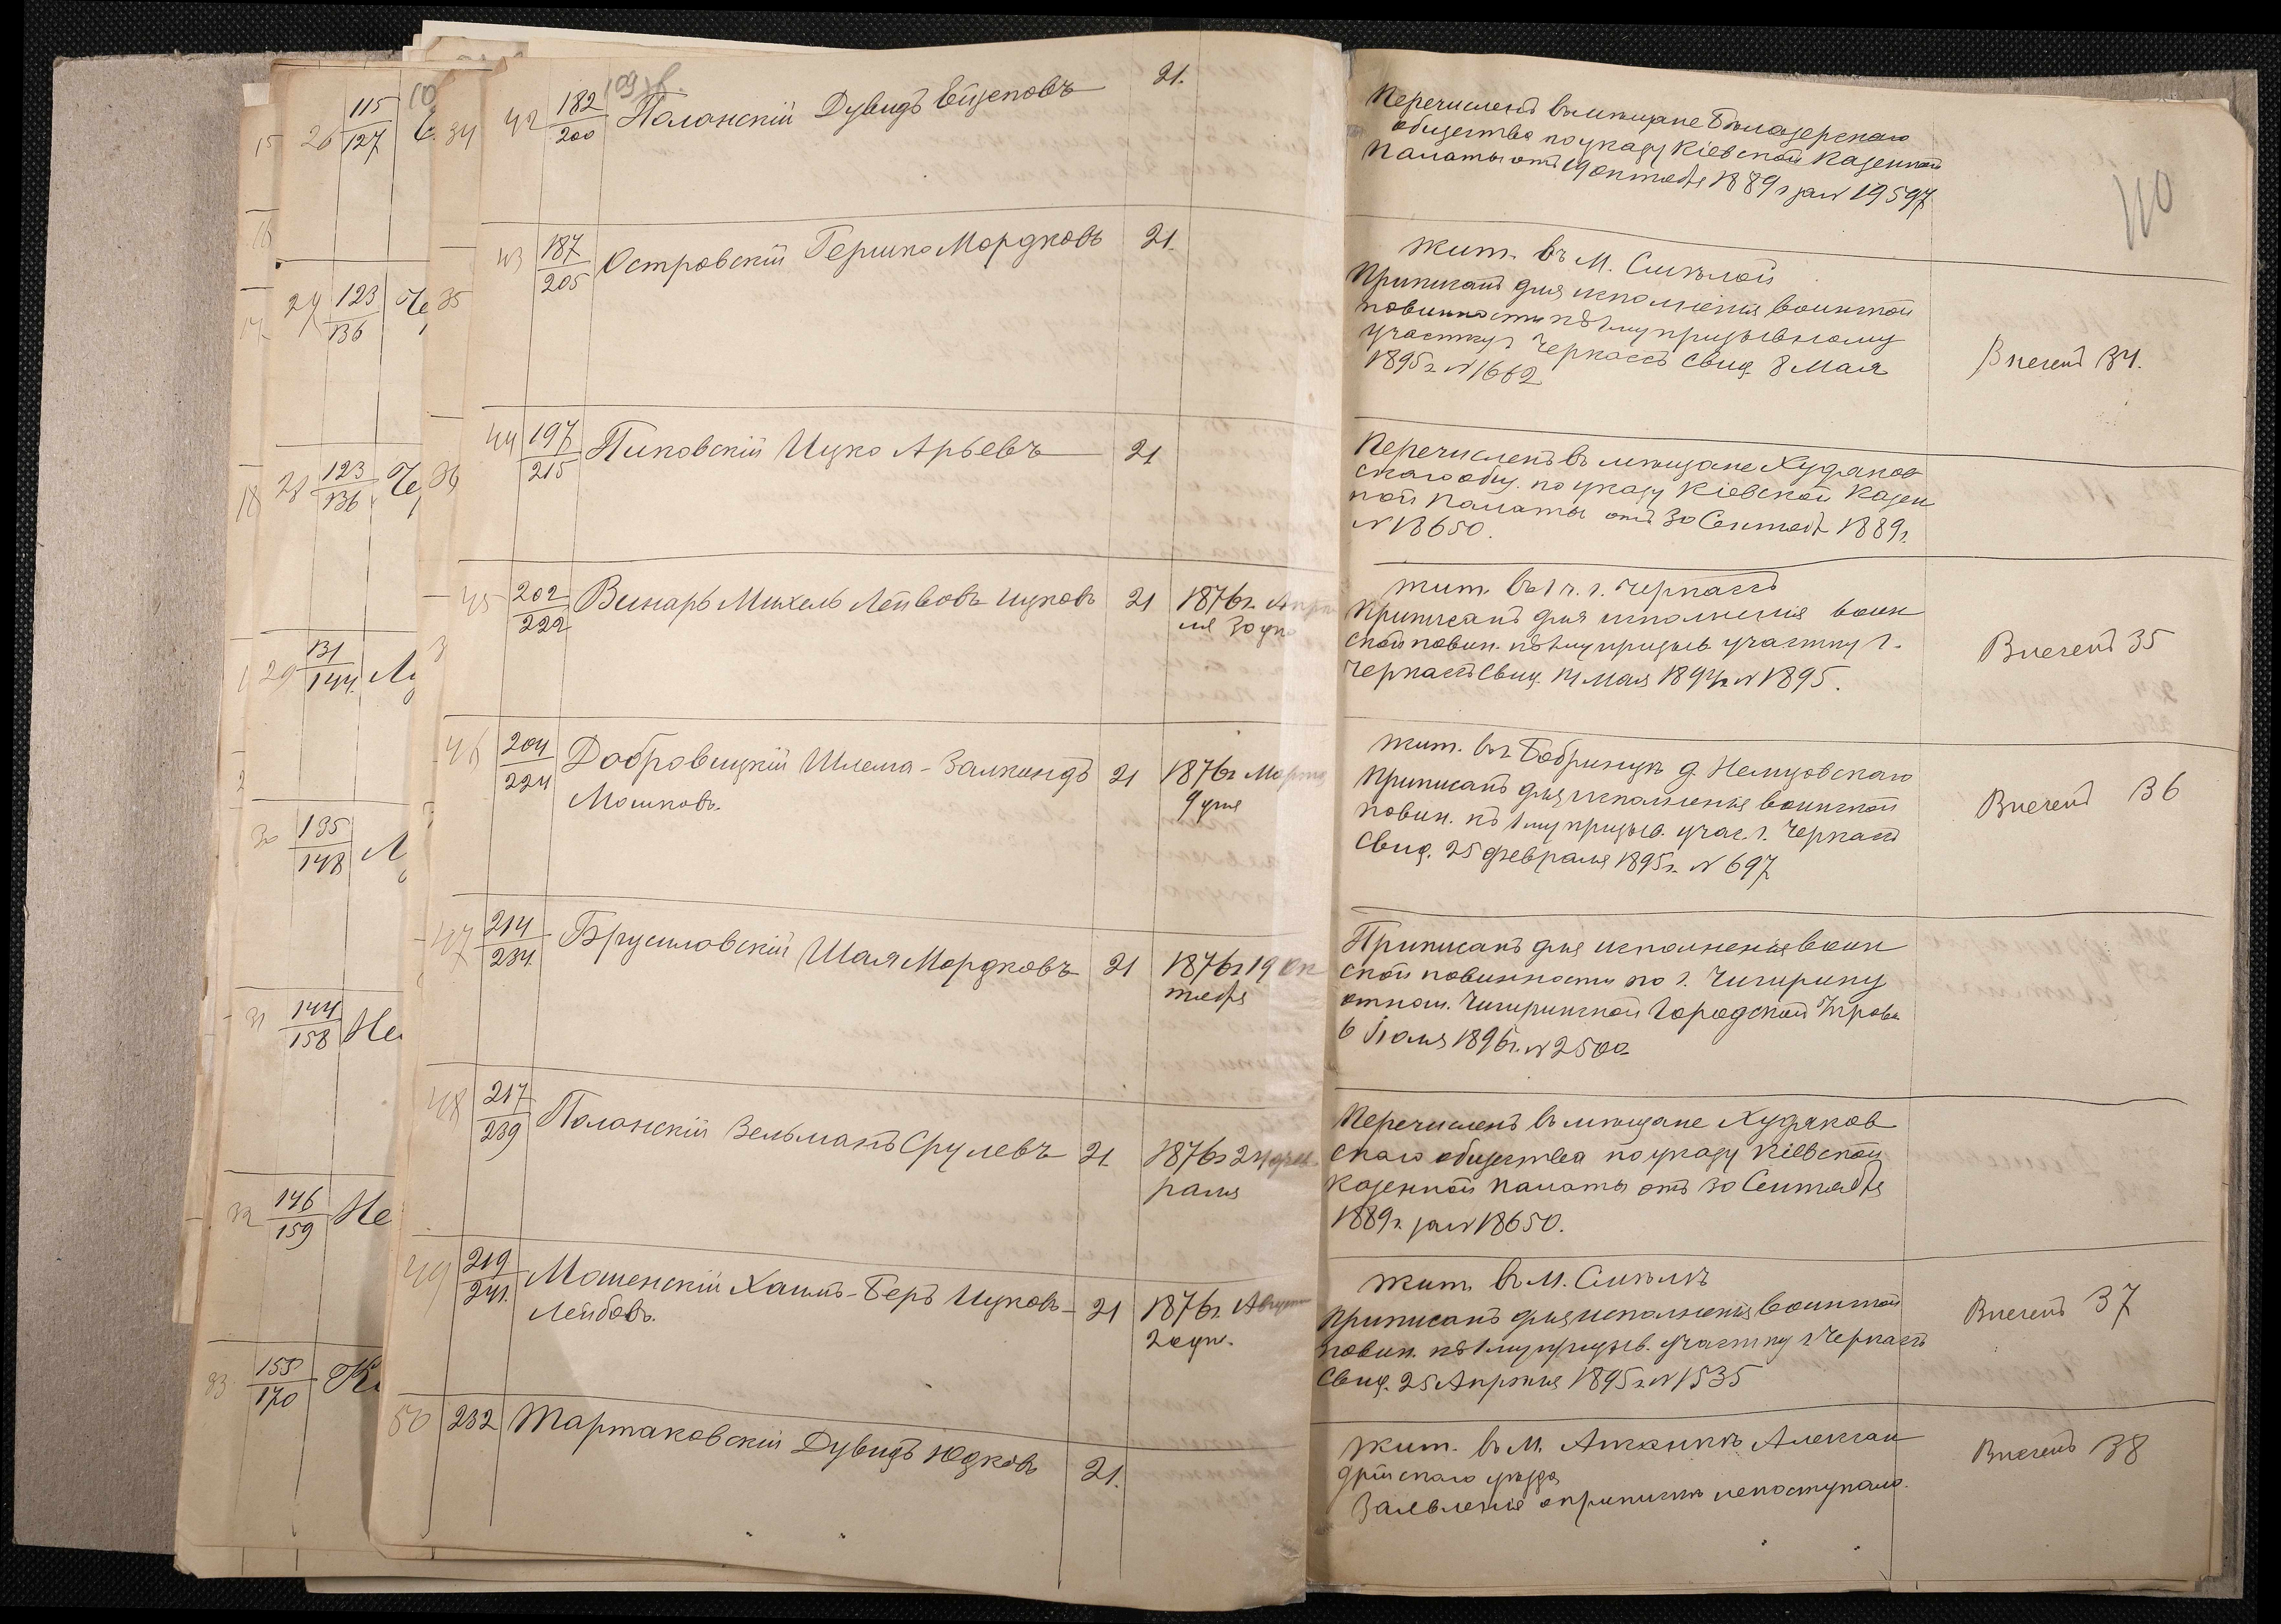 42 182/200 Полонскій Дувидъ 21.
Перечисленъ въ мѣщане Бѣлозерскаго
общества по указу Кіевской Казенной
Палаты отъ 19 октября 1889 г за N 19597
110
43 187/205 Островскій Гершко Мордковъ 21.
жит. въ М. Смѣлой
Приписанъ для исполненія воинской
повинности къ 1му призывному
участку г Черкассъ Свид. 8 Мая
1895 г. N 1662
Внесенъ 34.
44 197/215 Пиковскій Ицко Арьевъ 21
Перечисленъ въ мѣщане Худяков
скаго общ. по указу Кіевской Казен
ной Палаты отъ 30 Сентяб 1889 г.
N 18650.
45 202/222 Винарь Михель Лейвовъ Ицковъ 21 1876 г. Апрѣ
ля 30 дня
жит. въ 1 ч. г. Черкассъ
Приписанъ для исполненія воин
ской повин. къ 1му призыв. участку г.
Черкассъ Свид. 14 Мая 1894 г. N 1895.
Внесенъ 35
46 204/224 Добровицкій Шлема-Залкиндъ 21 1876 г Марта
Мошковъ. 9 дня
жит. въ Бобринцѣ д. Немцовскаго
Приписанъ для исполненія воинской
повин. къ 1му призыв. учас. г. Черкассъ
Свид. 25 февраля 1895 г. N 697
Внесенъ 36
47 214/234 Брусиловскій Шая Мордковъ 21 1876 г 19 Ок
тября
Приписанъ для исполненія воин
ской повинности по г. Чигирину
отнош. Чигиринской Городской Управы
6 Іюля 1896 г. N 2500
48 217/239 Полонскій Зельманъ Срулевъ 21 1876 г 24 фев
раля
Перечисленъ въ мѣщане Худяков
скаго общества по указу Кіевской
казенной палаты отъ 30 Сентября
1889 г. за N 18650.
49 219/241 Мошенскій Хаимъ-Беръ Ицковъ- 21 1876 г. Августа
Лейбовъ. 20 дн.
жит. въ М. Смѣлѣ
Приписанъ для исполненія воинской
повин. къ 1му призыв. участку г Черкассъ
Свид. 25 Апрѣля 1895 г. N 1535
Внесенъ 37
50 232 Тартаковскій Дувидъ Юдковъ 21.
жит. въ М. Алексан
дрійскаго уѣзда
Заявленія о припискѣ не поступало.
Внесенъ 38
26 115/127
34
27 123/136 Че
35
28 123/136 Че
29 131/144
30 135/148
31 144/158 Не
32 146/159 Не
33 155/170